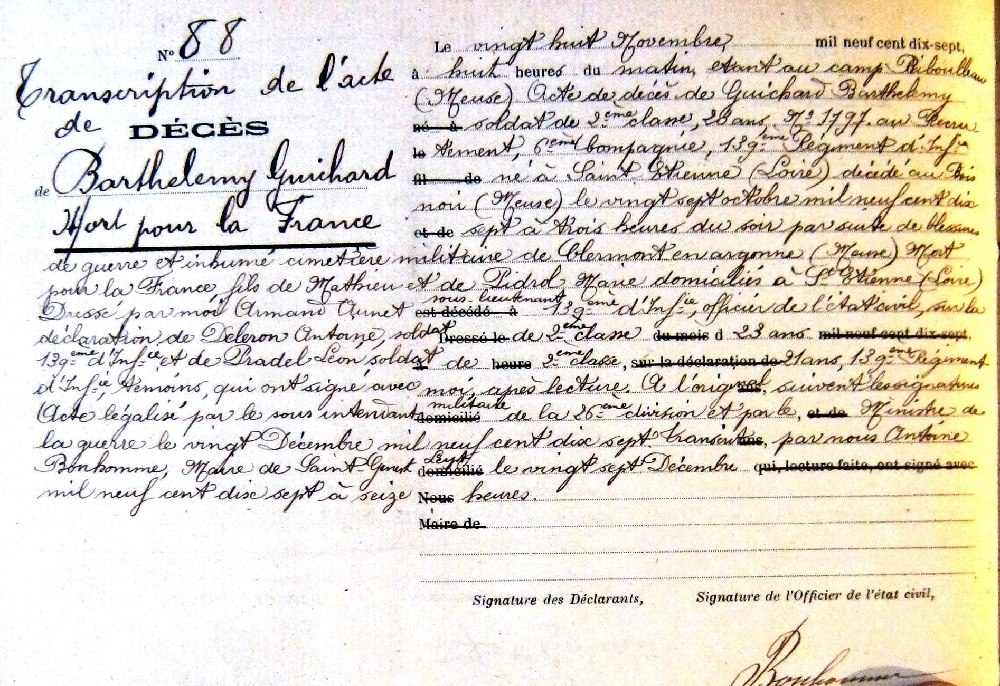 N° 88
Transcription de l'acte
de DÉCÈS
de Barthelemy Guichard
Mort pour la France
Le vingt huit Novembre mil neuf cent dix-sept,
à huit heures du matin, etant au camp Riboulleau
(Meuse) Acte de décès de Guichard Barthelemy
né à soldat de 2ème classe, 28 ans, N° 3797 au Recru
le tement, 6ème Compagnie, 139ème Régiment d'Infie
fil de né à Saint Etienne (Loire) décédé au Bois
noir (Meuse) le vingt sept octobre mil neuf cent dix
et de sept à trois heures du soir par suite de blessures
de guerre et inhumé cimetière militaire de Clermont en argonne (Meuse) Mort
pour la France fils de Mathieu et de Pidrol Marie domiciliés à St Etienne (Loire)
Dressé par moi Armand Aunet sous-lieutenant est décédé à 139ème d'Infie, officier de l'état civil, sur la
déclaration de Deleron Antoine, soldat Dressé le de 2ème classe du mois d 23 ans mil neuf cent dix-sept,
139ème d'Infie et de Pradel Léon soldat à de heure 2ème classe, sur la déclaration de 21 ans, 139ème Régiment
d'Infie, témoins, qui ont signé avec moi, après lecture. A l'original, suivent les signatures
Acte légalisé par le sous intendant militaire domicilié de la 26ème division et par le, et de Ministre de
la guerre le vingt Décembre mil neuf cent dix sept transcrit par nous Antoine
Bonhomme, Maire de Saint Genest Lerpt domicilié le vingt sept Décembre qui, lecture faite, ont signé avec
mil neuf cent dix sept à seize Nous heures.
Maire de
Signature des Déclarants, Signature de l'Officier de l'état civil,
Bonhomme